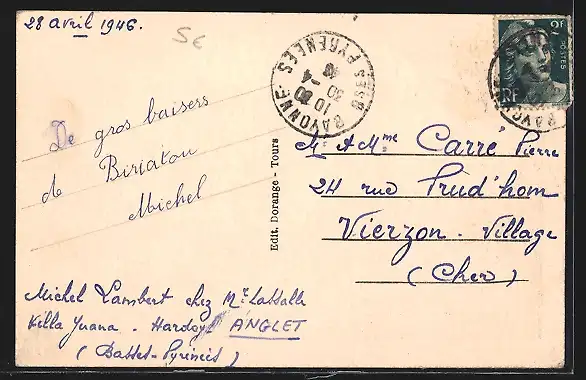 28 avril 1946.
5€
De gros baisers
de Biriatou
Michel
Michel Lambert chez Mr Lassalle
Villa Juana - Hardoy ANGLET
(Basses-Pyrénées)
Edit. Dorange - Tours
BAYONNE
10 00
30 -4
46
BSES PYRENEES
2F
POSTES
RF
M. & Mme Carré Pierre
24 rue Prud'hom
Vierzon - Village
(Cher)